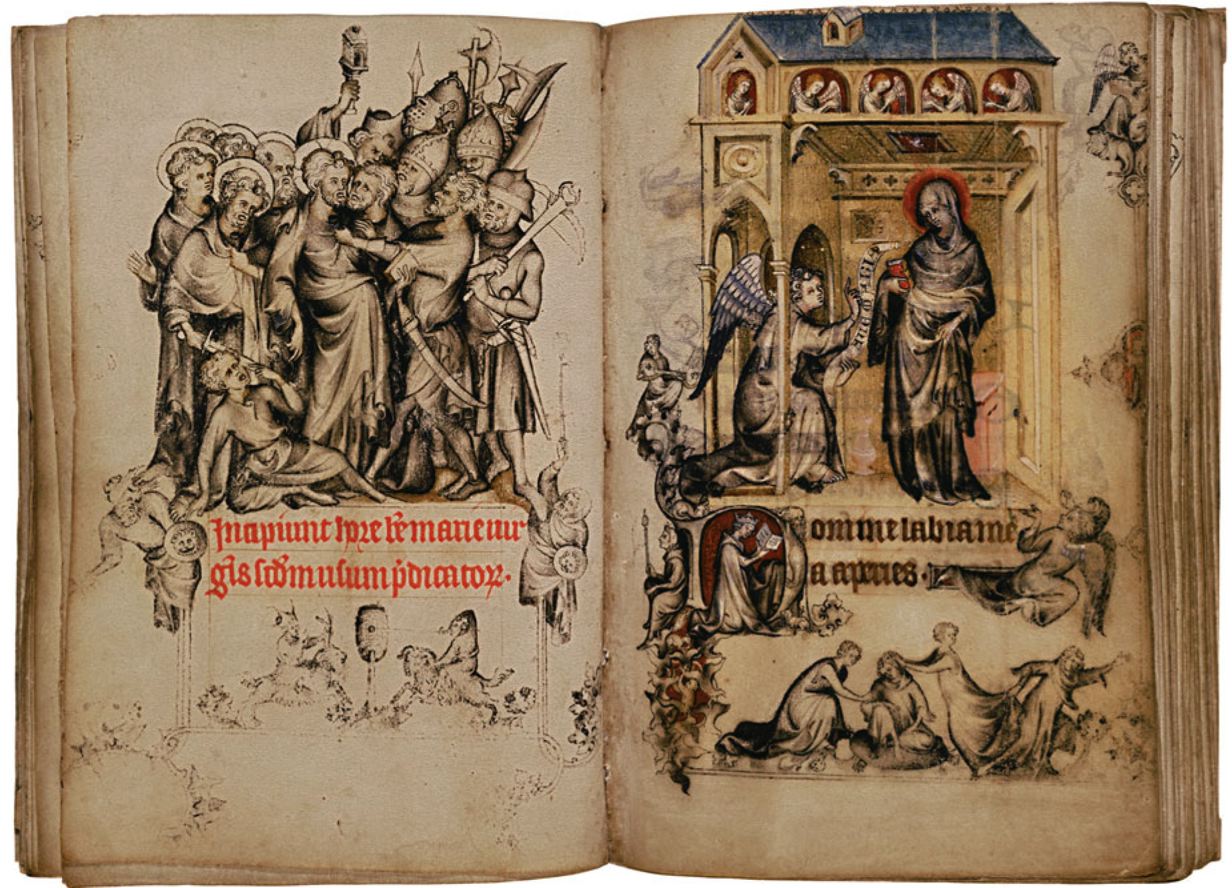 Incipiunt hore bẽ marie uir
gĩs scđm usum p̃dicatoꝝ.
Domine labia me
a aperies.